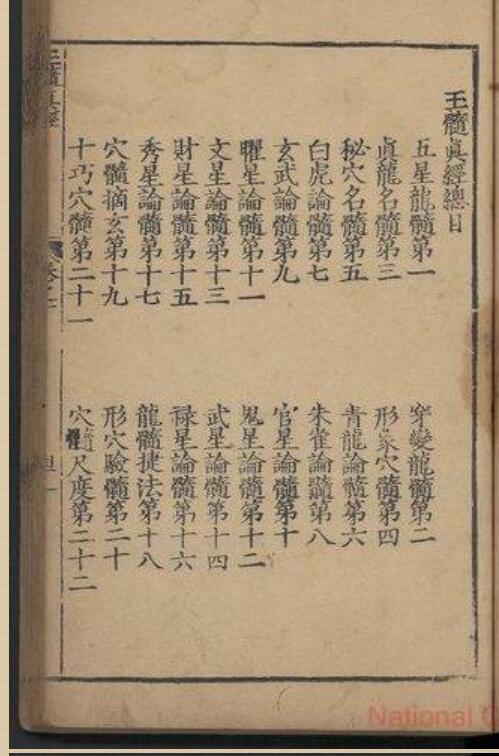 玉髓眞經總目
五星龍髓第一
穿變龍髓第二
眞龍名髓第三
形象穴髓第四
秘穴名髓第五
青龍論髓第六
白虎論髓第七
朱雀論髓第八
玄武論髓第九
官星論髓第十
曜星論髓第十一
鬼星論髓第十二
文星論髓第十三
武星論髓第十四
財星論髓第十五
禄星論髓第十六
秀星論髓第十七
龍髓捷法第十八
穴髓摘玄第十九
形穴驗髓第二十
十巧穴髓第二十一
穴髓尺度第二十二
National